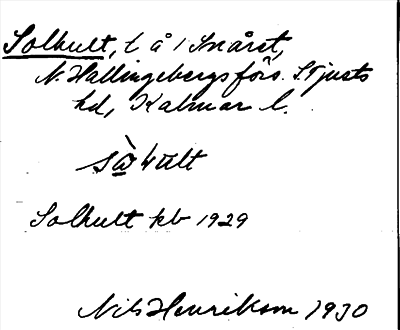 Solhult, l å 1 Snåret,
N. Hallingebergs förs. S Tjusts
hd, Kalmar l.
sàhult
Solhult kb 1929
Nils Henrikson 1930